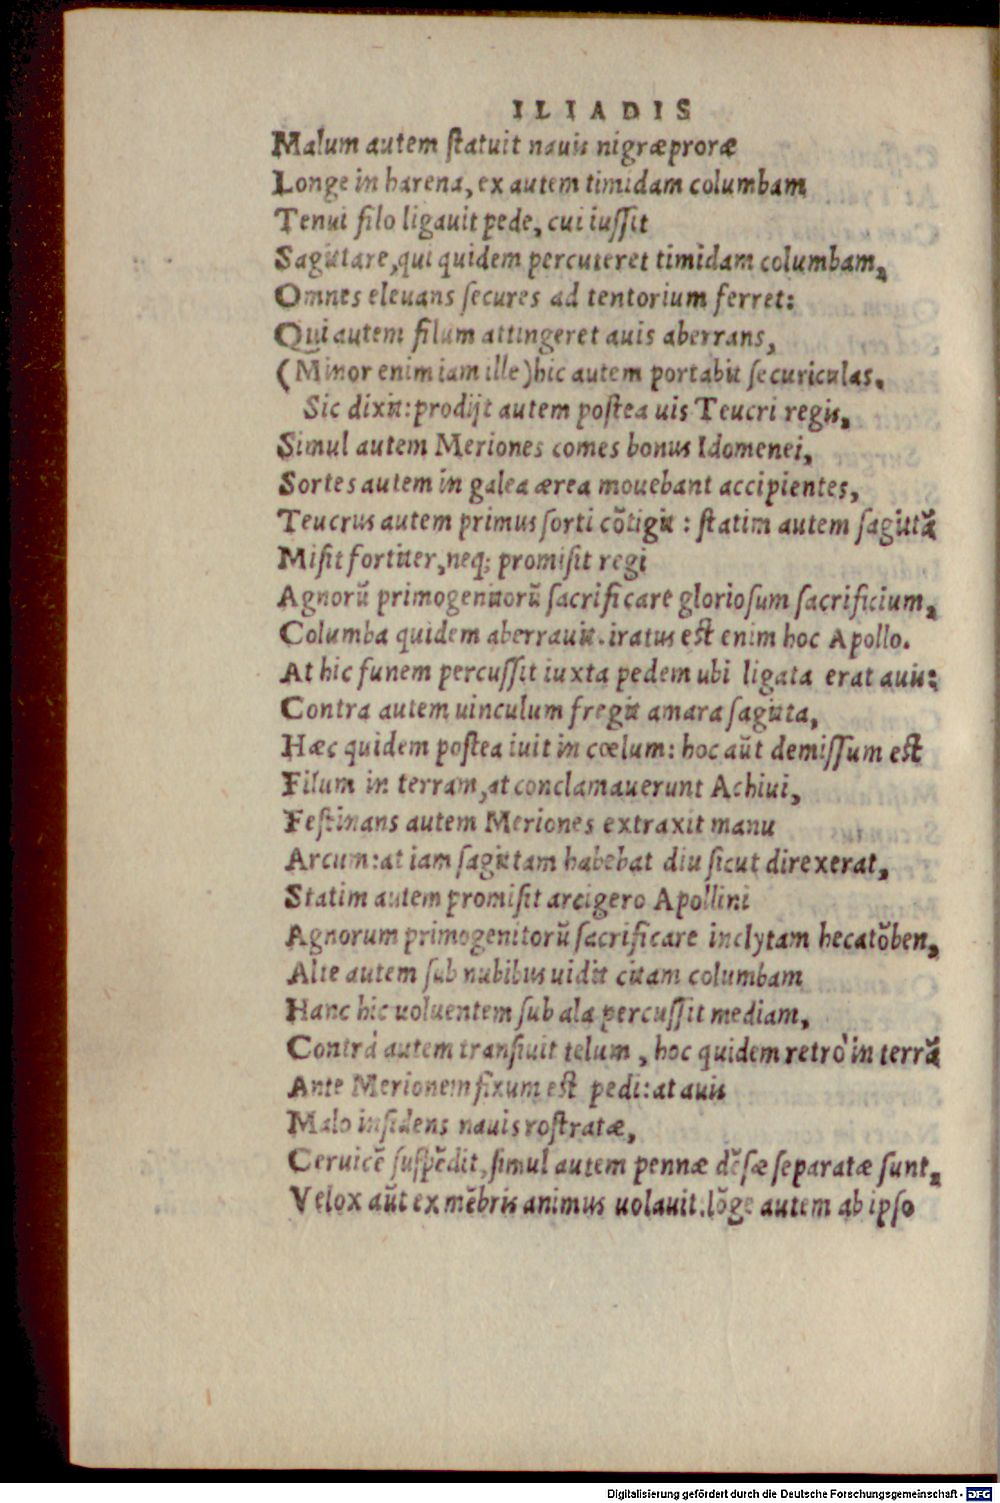 ILIADIS
Malum autem ſtatuit nauis nigræproræ
Longe in harena, ex autem timidam columbam
Tenui filo ligauit pede, cui iuſſit
Sagittare, qui quidem percuteret timidam columbam,
Omnes eleuans ſecures ad tentorium ferret:
Qui autem filum attingeret auis aberrans,
(Minor enim iam ille) hic autem portabit ſecuriculas.
Sic dixit: prodijt autem poſtea uis Teucri regis,
Simul autem Meriones comes bonus Idomenei,
Sortes autem in galea ærea mouebant accipientes,
Teucrus autem primus ſorti cõtigit : ſtatim autem ſagittã
Miſit fortiter, neq; promiſit regi
Agnorũ primogenitorũ ſacrificare glorioſum ſacrificium,
Columba quidem aberrauit. iratus eſt enim hoc Apollo.
At hic funem percuſſit iuxta pedem ubi ligata erat auis:
Contra autem uinculum fregit amara ſagitta,
Hæc quidem poſtea iuit in cœlum: hoc aũt demiſſum eſt
Filum in terram, at conclamauerunt Achiui,
Feſtinans autem Meriones extraxit manu
Arcum: at iam ſagittam habebat diu ſicut direxerat,
Statim autem promiſit arcigero Apollini
Agnorum primogenitorũ ſacrificare inclytam hecatõben,
Alte autem ſub nubibus uidit citam columbam
Hanc hic uoluentem ſub ala percuſſit mediam,
Contrà autem tranſiuit telum , hoc quidem retrò in terrã
Ante Merionem fixum eſt pedi: at auis
Malo inſidens nauis roſtratæ,
Ceruicẽ ſuſpẽdit, ſimul autem pennæ dẽſæ ſeparatæ ſunt,
Velox aũt ex mẽbris animus uolauit. lõge autem ab ipſo
Digitalisierung gefördert durch die Deutsche Forschungsgemeinschaft - DFG